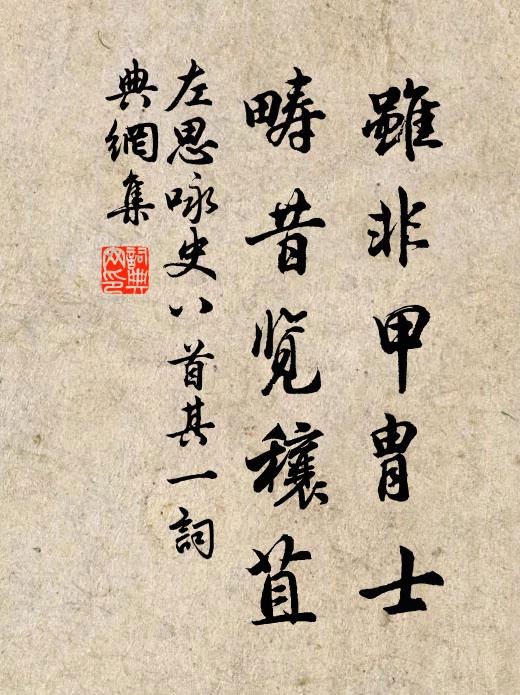 雖非甲胄士
疇昔覽穰苴
左思咏史八首其一詞
典網集
詞典網印